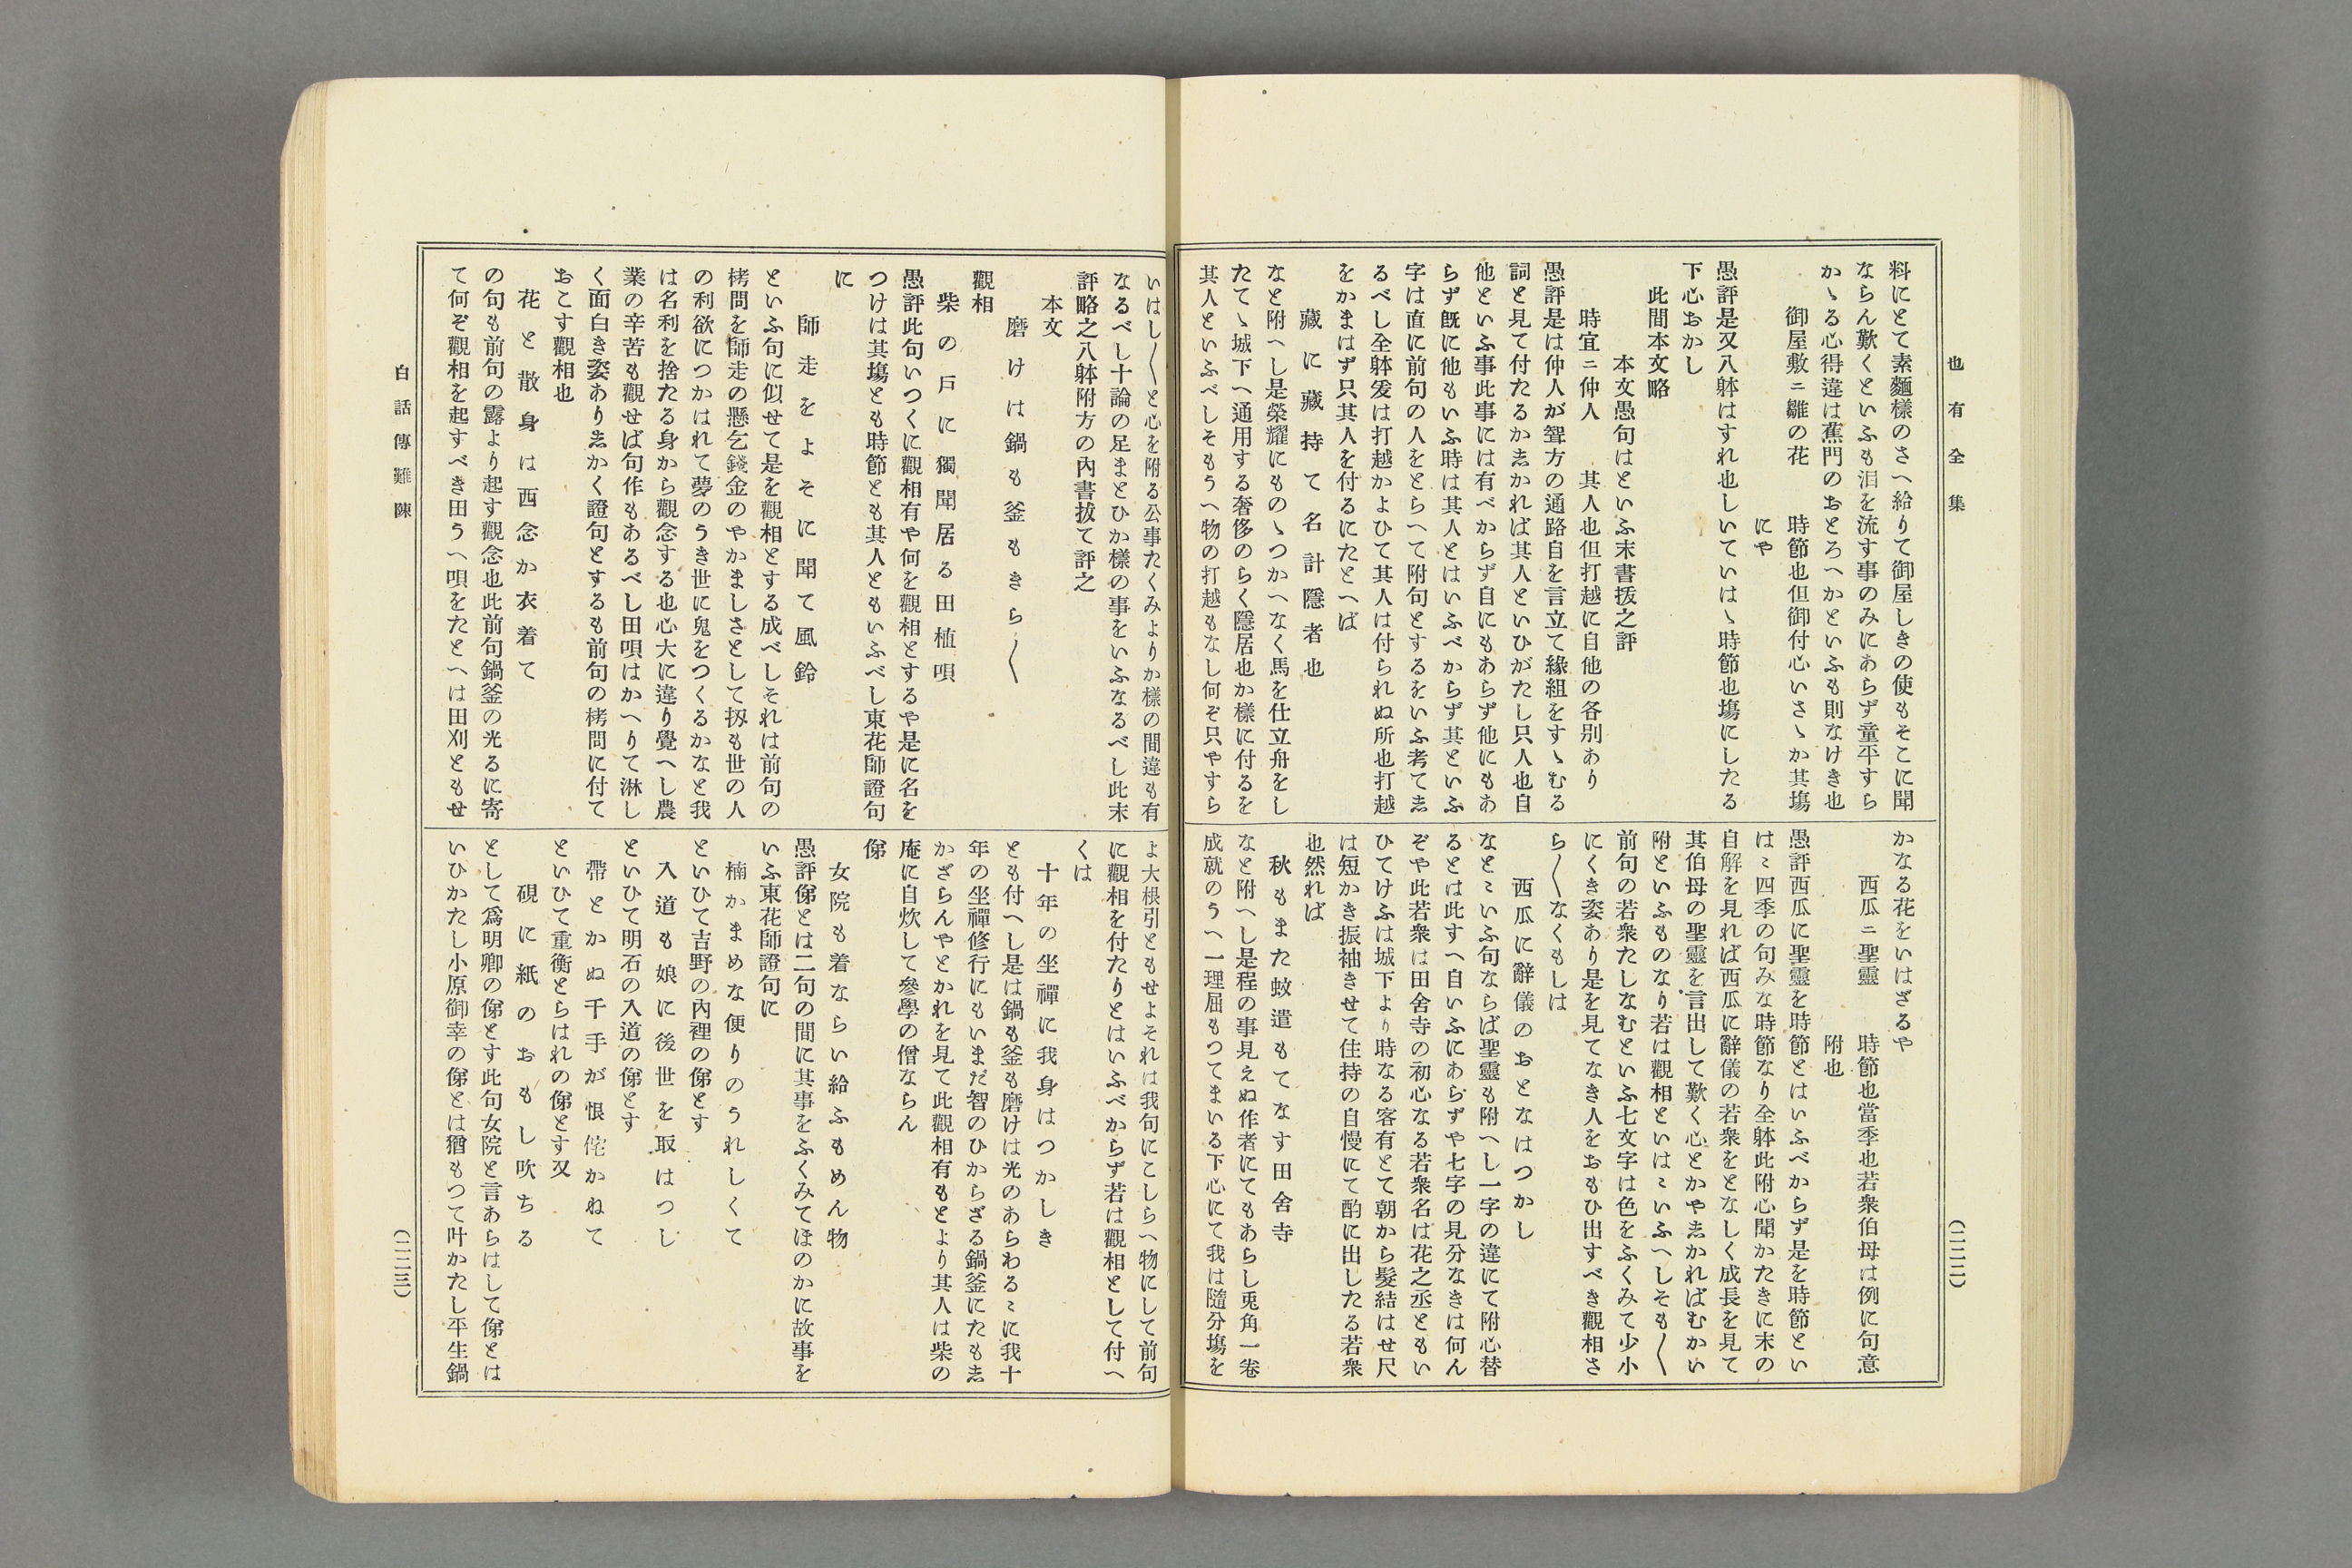 也有全集
料にとて素麵樣のさへ給りて御屋しきの使もそこに聞
ならん歎くといふも泪を流す事のみにあらず童平すら
かゝる心得違は蕉門のおとろへかといふも則なけき也
御屋敷ニ雛の花　時節也但御付心いさゝか其塲
にや
愚評是又八躰はすれ也しいていはゝ時節也塲にしたる
下心おかし
此間本文略
本文愚句はといふ末書拔之評
時宜ニ仲人　其人也但打越に自他の各別あり
愚評是は仲人が聟方の通路自を言立て緣組をすゝむる
詞と見て付たるか志かれば其人といひがたし只人也自
他といふ事此事には有べからず自にもあらず他にもあ
らず旣に他もいふ時は其人とはいふべからず其といふ
字は直に前句の人をとらへて附句とするをいふ考て志
るべし全躰爰は打越かよひて其人は付られぬ所也打越
をかまはず只其人を付るにたとへば
藏に藏持て名計隱者也
なと附へし是榮耀にものゝつかへなく馬を仕立舟をし
たてゝ城下へ通用する奢侈のらく隱居也か樣に付るを
其人といふべしそもうへ物の打越もなし何ぞ只やすら
かなる花をいはざるや
西瓜ニ聖靈　時節也當季也若衆伯母は例に句意
附也
愚評西瓜に聖靈を時節とはいふべからず是を時節とい
はゞ四季の句みな時節なり全躰此附心聞かたきに末の
自解を見れば西瓜に辭儀の若衆をとなしく成長を見て
其伯母の聖靈を言出して歎く心とかや志かればむかい
附といふものなり若は觀相といはゞいふへしそも〳〵
前句の若衆たしなむといふ七文字は色をふくみて少小
にくき姿あり是を見てなき人をおもひ出すべき觀相さ
ら〳〵なくもしは
西瓜に辭儀のおとなはつかし
なとゞいふ句ならば聖靈も附へし一字の違にて附心替
るとは此すへ自いふにあらずや七字の見分なきは何ん
ぞや此若衆は田舍寺の初心なる若衆名は花之丞ともい
ひてけふは城下より時なる客有とて朝から髮結はせ尺
は短かき振袖きせて住持の自慢にて酌に出したる若衆
也然れば
秋もまた蚊遣もてなす田舍寺
なと附へし是程の事見えぬ作者にてもあらし兎角一卷
成就のうへ一理屈もつてまいる下心にて我は隨分塲を
(二二二)
いはし〳〵と心を附る公事たくみよりか樣の間違も有
なるべし十論の足まとひか樣の事をいふなるべし此末
評略之八躰附方の內書拔て評之
本文
磨けは鍋も釜もきら〳〵
觀相
柴の戶に獨聞居る田植唄
愚評此句いつくに觀相有や何を觀相とするや是に名を
つけは其塲とも時節とも其人ともいふべし東花師證句
に
師走をよそに聞て風鈴
といふ句に似せて是を觀相とする成べしそれは前句の
栲問を師走の懸乞錢金のやかましさとして扨も世の人
の利欲につかはれて夢のうき世に鬼をつくるかなと我
は名利を捨たる身から觀念する也心大に違り覺へし農
業の辛苦も觀せば句作もあるべし田唄はかへりて淋し
く面白き姿あり志かく證句とするも前句の栲問に付て
おこす觀相也
花と散身は西念か衣着て
の句も前句の露より起す觀念也此前句鍋釜の光るに寄
て何ぞ觀相を起すべき田うへ唄をたとへは田刈ともせ
よ大根引ともせよそれは我句にこしらへ物にして前句
に觀相を付たりとはいふべからず若は觀相として付へ
くは
十年の坐禪に我身はつかしき
とも付へし是は鍋も釜も磨けは光のあらわるゞに我十
年の坐禪修行にもいまだ智のひからざる鍋釜にたも志
かざらんやとかれを見て此觀相有もとより其人は柴の
庵に自炊して參學の僧ならん
俤
女院も着ならい給ふもめん物
愚評俤とは二句の間に其事をふくみてほのかに故事を
いふ東花師證句に
楠かまめな便りのうれしくて
といひて吉野の內裡の俤とす
入道も娘に後世を取はつし
といひて明石の入道の俤とす
帶とかぬ千手が恨侘かねて
といひて重衡とらはれの俤とす又
硯に紙のおもし吹ちる
として爲明卿の俤とす此句女院と言あらはして俤とは
いひかたし小原御幸の俤とは猶もつて叶かたし平生鍋
白話傳難陳
(二二三)